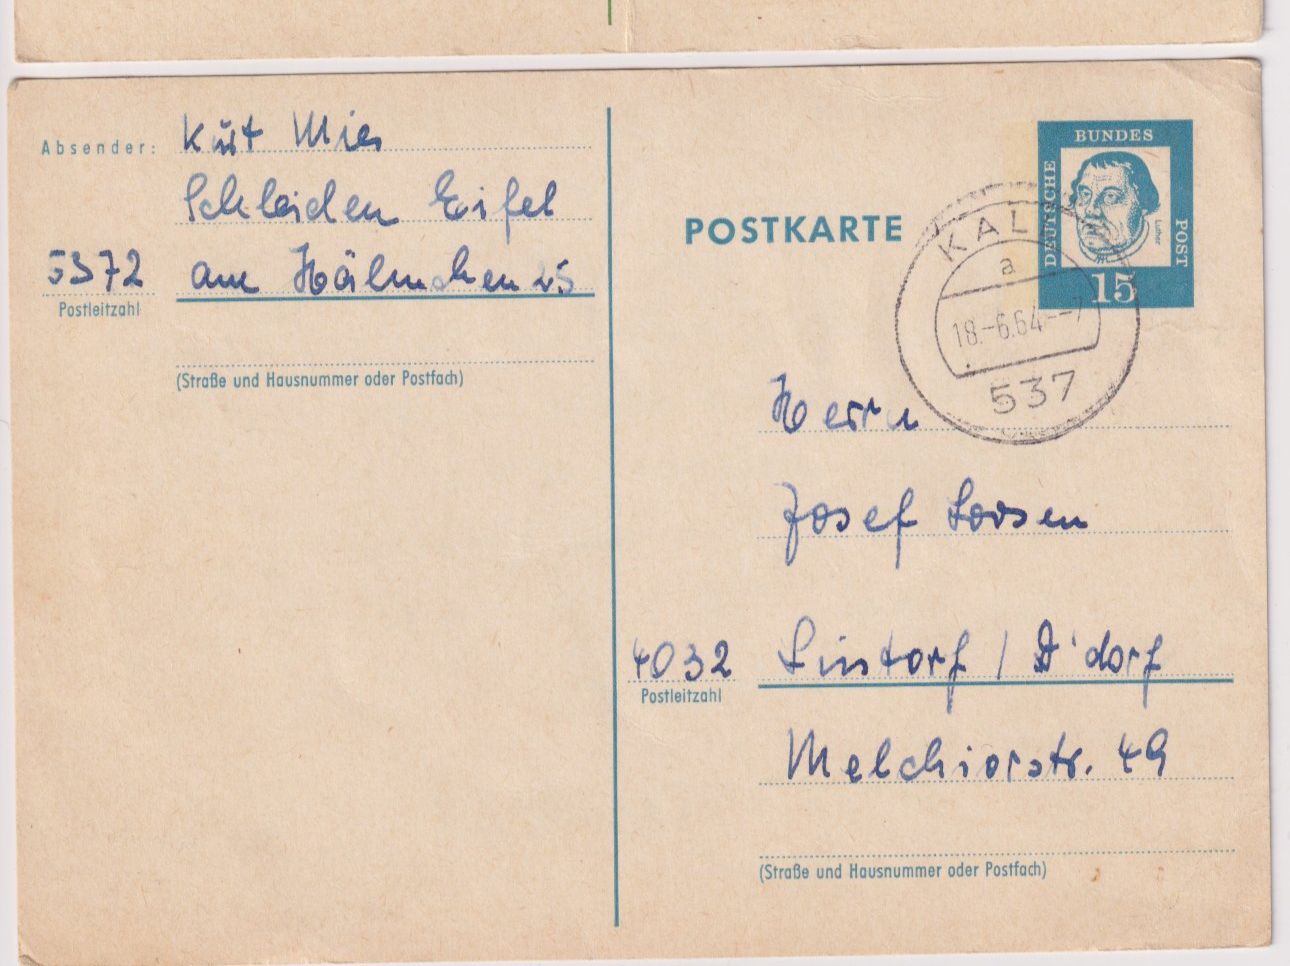 Absender: Kurt Mies
Schleiden Eifel
5372 am Hälmchen 25
Postleitzahl
(Straße und Hausnummer oder Postfach)
DEUTSCHE BUNDES POST
Luther
15
POSTKARTE
KALL
a
18.-6.64--7
537
Herrn
Josef Lorsen
4032 Lintorf / D'dorf
Postleitzahl
Melchiorstr. 49
(Straße und Hausnummer oder Postfach)